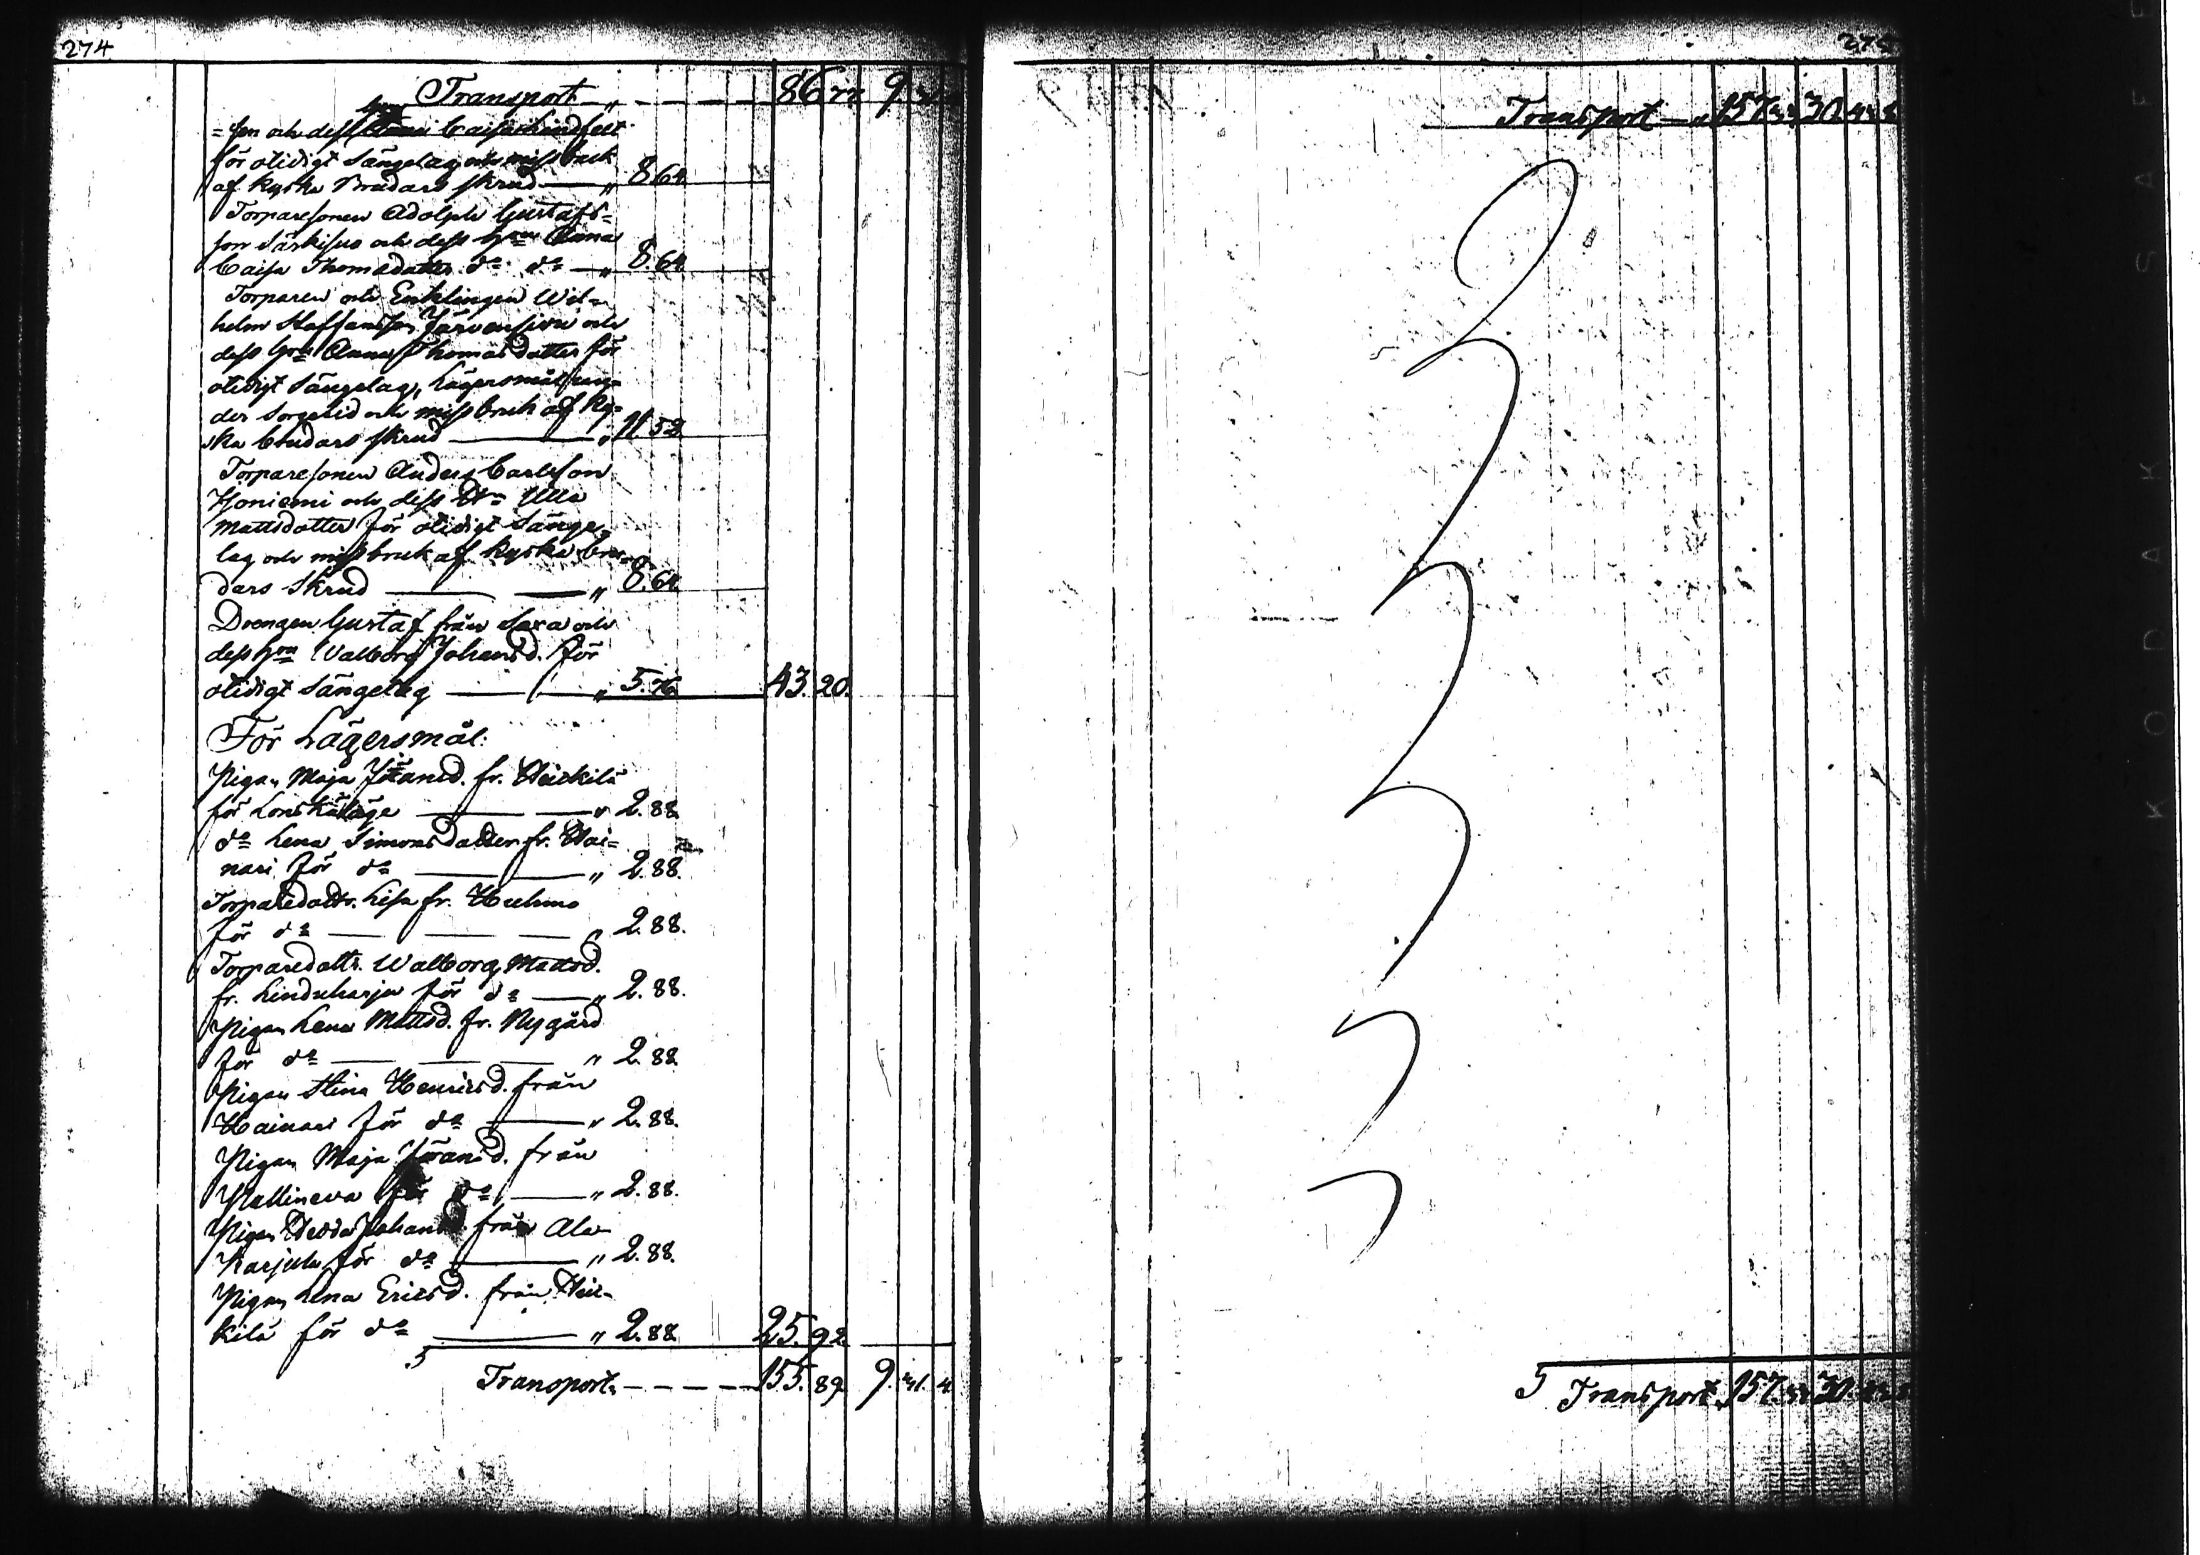 274
Transport „ 86.77 9.
=son och dess hru Caisa Lindfelt
för otidigt Sängelag och missbruk
af kyska Brudars skrud „ 8.64
Torparesonen Adolph Gustafs=
son Särkisuo och dess hru Anna
Caisa Thomædotter do do „ 8.64
Torparen och Enklingen Wil=
helm Staffansson Järvensivu och
dess hru Anna Thomasdotter för
otidigt Sängelag, Lägersmål un=
der Sorgetid och missbruk af ky=
ska brudars skrud „ 11.52
Torparesonen Anders Carlsson
Honiemi och dess Ulla
Mattsdotter för otidigt Sänge=
lag och missbruk af kyska bru=
dars Skrud „ 8.64
Drengen Gustaf från Saxa och
dess hru Walborg Johansd. för
otidigt Sängelag „ 5.76 43.20.
För Lägersmål:
Pigan Maja Jöransd. fr. Heickilä
för Lönskaläge „ 2.88
do Lena Simonsdotter fr. Hai=
nari för do „ 2.88.
Torparedottr. Lisa fr. Huhmo
för do „ 2.88.
Torparedottr. Walborg Mattsd.
fr. Linduharju för do „ 2.88.
Pigan Lena Mattsd. fr. Nygård
för do „ 2.88.
Pigan Stina Henricsd. från
Hainari för do „ 2.88.
Pigan Maja Jöransd. från
Mallineva för do „ 2.88.
Pigan Hedda Johansd. från Ala
Karjula för do „ 2.88.
Pigan Lena Ericsd. från Heic=
kilä för do „ 2.88. 25.92.
5
Transport 155.89 9. 4.
Transport „ 157. 30.
5 Transport „ 157. 30.
KODAK SAFE